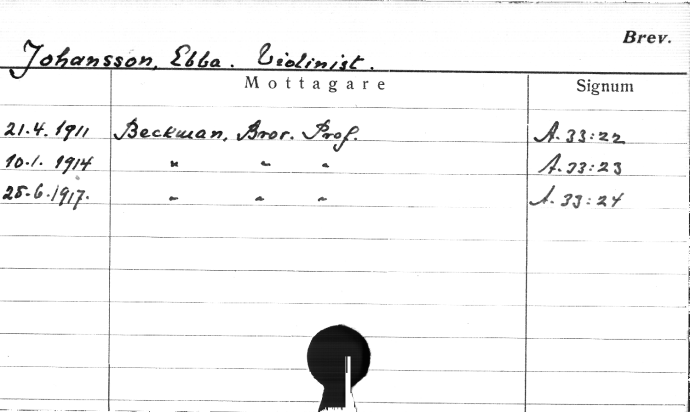 Brev.
Johansson, Ebba. Violinist.
Mottagare Signum
21.4.1911 Beckman, Bror. Prof. A.33:22
10.1.1914 " " " A.33:23
25.6.1917. " " " A.33:24